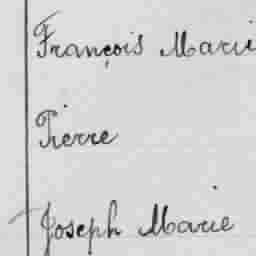 François Mari
Pierre
Joseph Marie